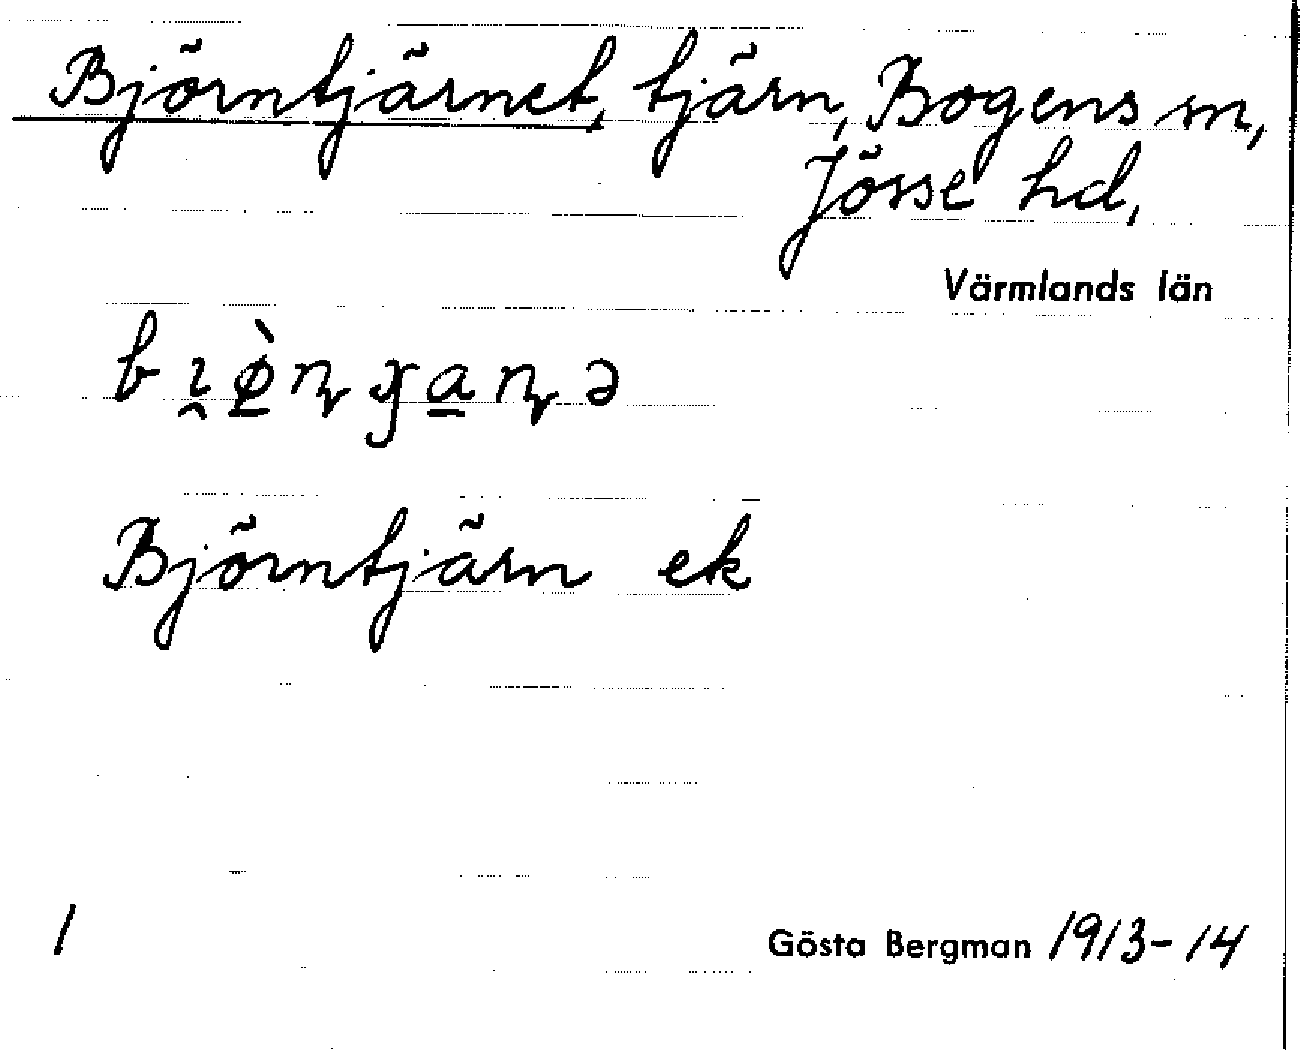 Björntjärnet, tjärn, Bogens sn,
Jösse hd,
Värmlands län
Björntjärn ek
1
Gösta Bergman 1913-14